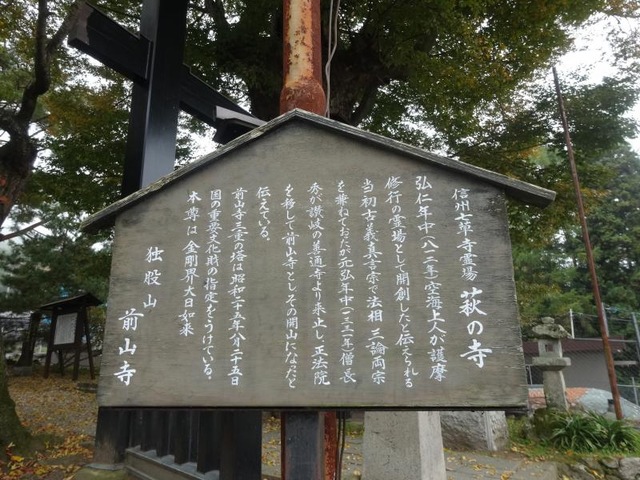 信州七草寺霊場　萩の寺
弘仁年中（八一二年）空海上人が護摩
修行の霊場として開創したと伝えられる
当初古義真言宗で法相三論両宗
を兼ねておたが元弘年中一三三一年僧長
秀が讃岐の善通寺より来止し正法院
を移して前山寺としその開山になったと
伝えている。
前山寺三重の塔は昭和二十五年八月二十五日
国の重要文化財の指定をうけている。
本尊は金剛界大日如来
独股山　前山寺